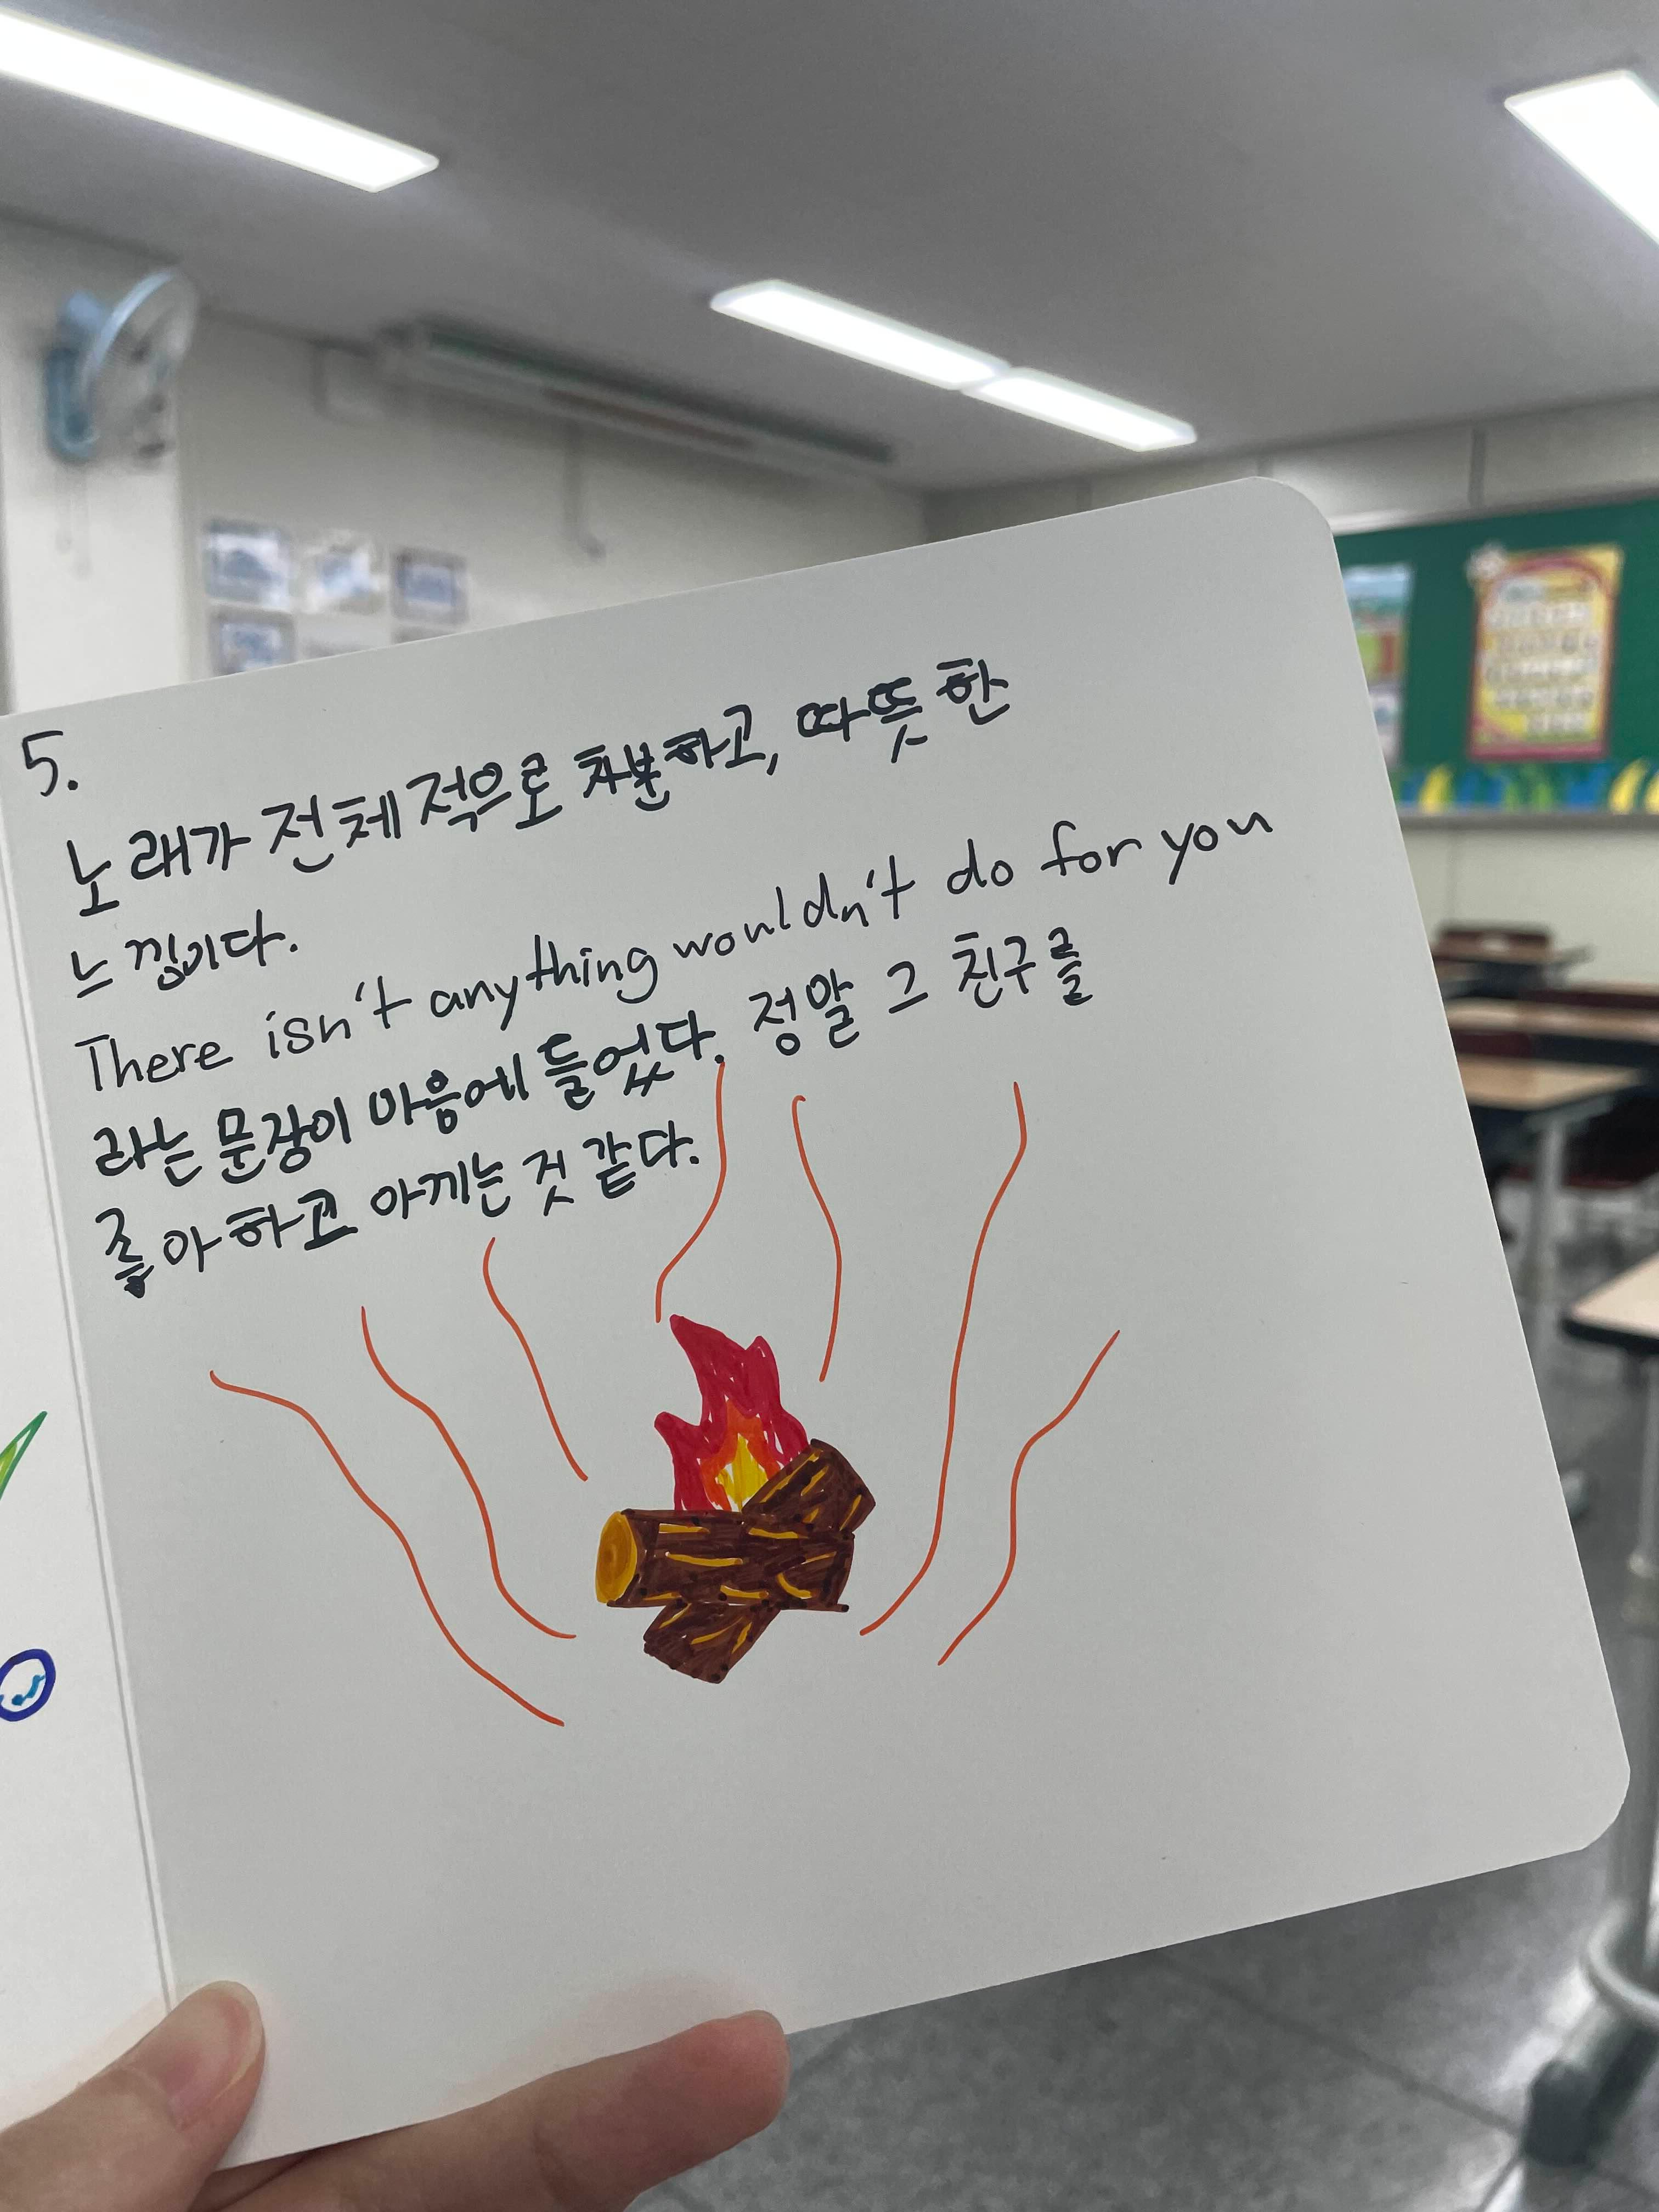 5.
노래가 전체적으로 차분하고, 따뜻한
느낌이다.
There isn't anything wouldn't do for you
라는 문장이 마음에 들었다. 정말 그 친구를
좋아하고 아끼는 것 같다.